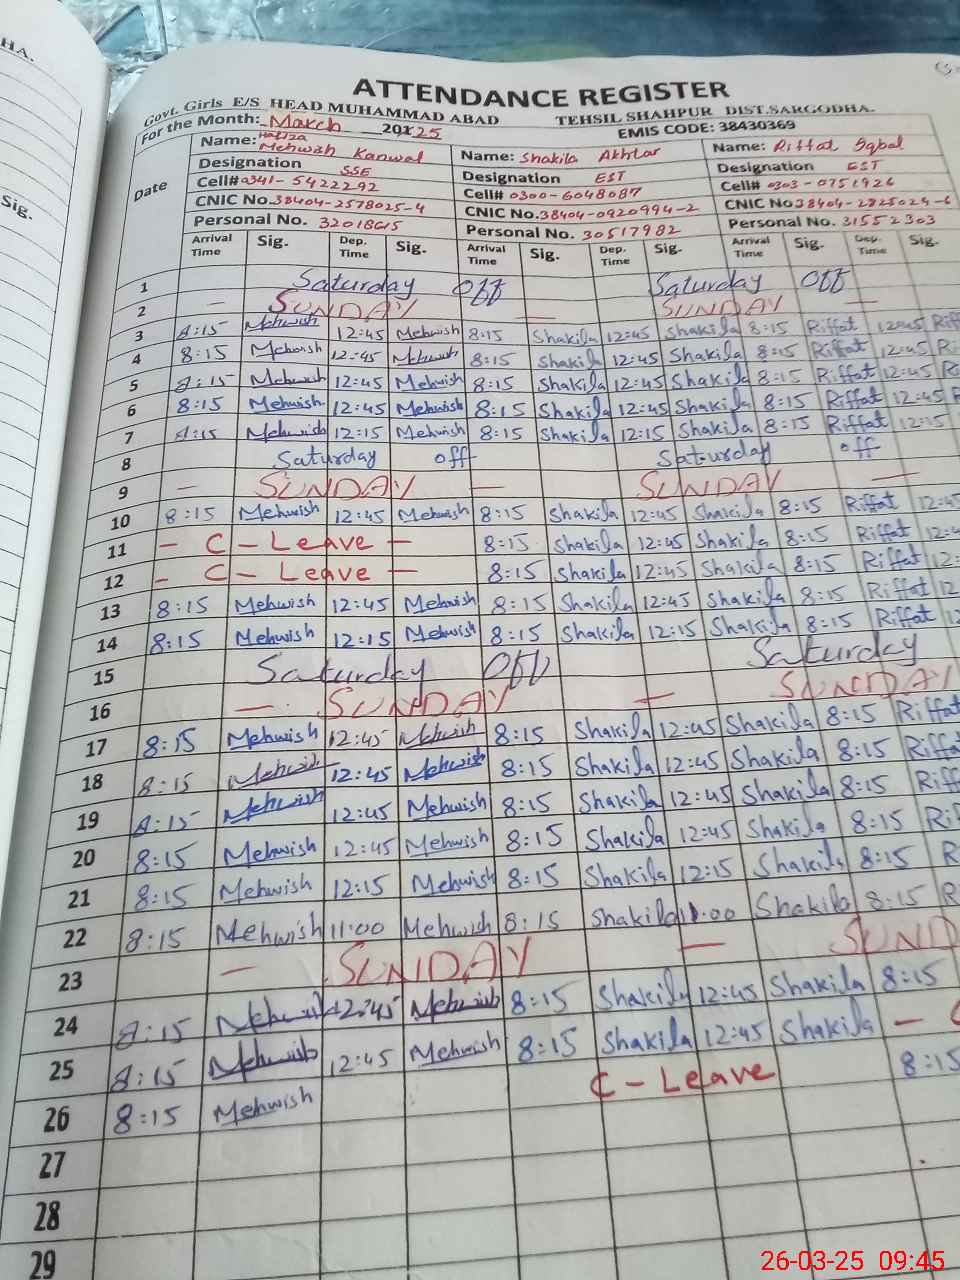 HA.
Sig.
ATTENDANCE REGISTER
Govt. Girls E/S HEAD MUHAMMAD ABAD TEHSIL SHAHPUR DIST.SARGODHA.
For the Month: March 2025 EMIS CODE: 38430369
Date Name: Hafiza Mehwish Kanwal Name: Shakila Akhtar Name: Riffat Iqbal
Designation SSE Designation EST Designation EST
Cell# 0341-5422292 Cell# 0300-6048087 Cell# 0303-0751926
CNIC No. 38404-2578025-4 CNIC No. 38404-0920994-2 CNIC No 38404-2825024-6
Personal No. 32018615 Personal No. 30517982 Personal No. 31552303
Arrival Time Sig. Dep. Time Sig. Arrival Time Sig. Dep. Time Sig. Arrival Time Sig. Dep. Time Sig.
1 Saturday Off Saturday Off
2 — SUNDAY — SUNDAY —
3 8:15 Mehwish 12:45 Mehwish 8:15 Shakila 12:45 Shakila 8:15 Riffat 12:45 Riff
4 8:15 Mehwish 12:45 Mehwish 8:15 Shakila 12:45 Shakila 8:15 Riffat 12:45 Ri
5 8:15 Mehwish 12:45 Mehwish 8:15 Shakila 12:45 Shakila 8:15 Riffat 12:45 R
6 8:15 Mehwish 12:45 Mehwish 8:15 Shakila 12:45 Shakila 8:15 Riffat 12:45 R
7 8:15 Mehwish 12:15 Mehwish 8:15 Shakila 12:15 Shakila 8:15 Riffat 12:15
8 Saturday off Saturday off
9 — SUNDAY — SUNDAY —
10 8:15 Mehwish 12:45 Mehwish 8:15 Shakila 12:45 Shakila 8:15 Riffat 12:45
11 — C — Leave — 8:15 Shakila 12:45 Shakila 8:15 Riffat 12:4
12 — C — Leave — 8:15 Shakila 12:45 Shakila 8:15 Riffat 12:
13 8:15 Mehwish 12:45 Mehwish 8:15 Shakila 12:45 Shakila 8:15 Riffat 12
14 8:15 Mehwish 12:15 Mehwish 8:15 Shakila 12:15 Shakila 8:15 Riffat 12
15 Saturday Off Saturday
16 — SUNDAY — SUNDAY
17 8:15 Mehwish 12:45 Mehwish 8:15 Shakila 12:45 Shakila 8:15 Riffat
18 8:15 Mehwish 12:45 Mehwish 8:15 Shakila 12:45 Shakila 8:15 Riffa
19 8:15 Mehwish 12:45 Mehwish 8:15 Shakila 12:45 Shakila 8:15 Riff
20 8:15 Mehwish 12:45 Mehwish 8:15 Shakila 12:45 Shakila 8:15 Rif
21 8:15 Mehwish 12:15 Mehwish 8:15 Shakila 12:15 Shakila 8:15 R
22 8:15 Mehwish 11:00 Mehwish 8:15 Shakila 11:00 Shakila 8:15 R
23 — SUNDAY — SUND
24 8:15 Mehwish 12:45 Mehwish 8:15 Shakila 12:45 Shakila 8:15
25 8:15 Mehwish 12:45 Mehwish 8:15 Shakila 12:45 Shakila — C
26 8:15 Mehwish C — Leave 8:15
27
28
29
26-03-25 09:45